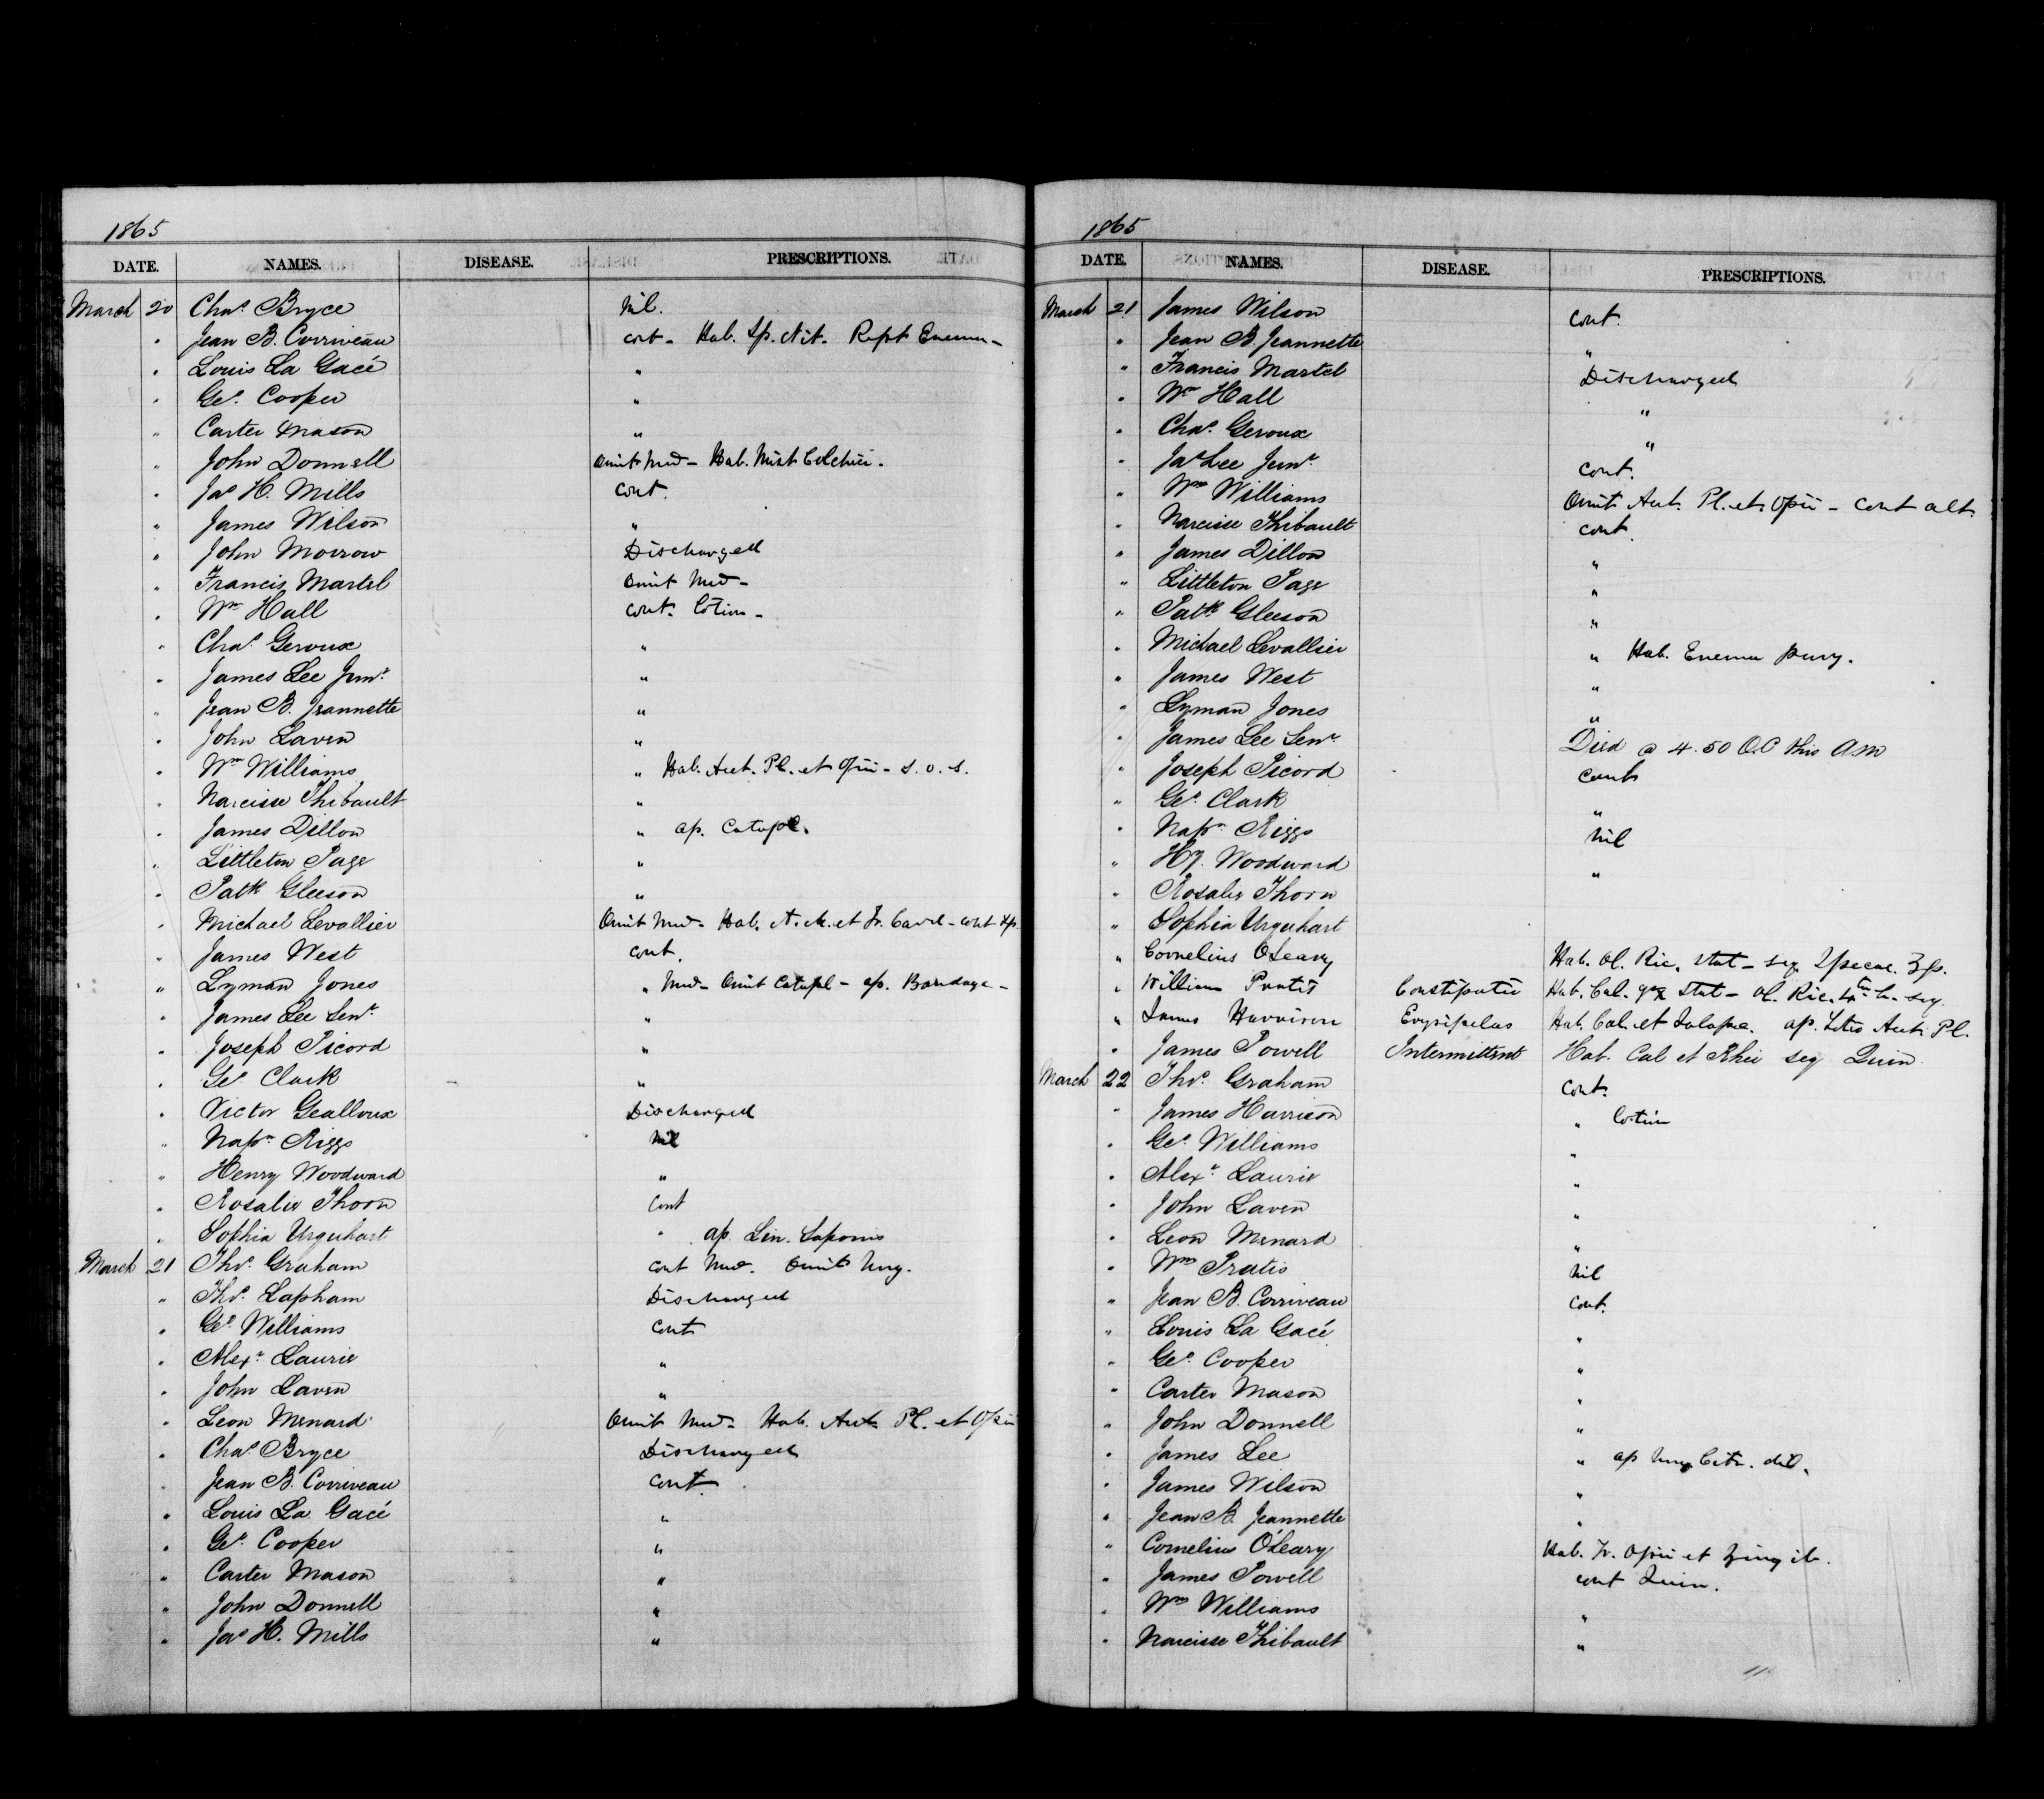 1865
DATE. NAMES. DISEASE. PRESCRIPTIONS.
March 20 Chas. Bryce Nil.
" Jean B. Corriveau cont - Hab. Sp. Nit. Rept Enema -
" Louis La Gacé "
" Geo. Cooper "
" Carter Mason "
" John Donnell Omit Med - Hab. Mist Colchici.
" Jas H. Mills Cont.
" James Wilson "
" John Morrow Discharged
" Francis Martel Omit Med -
" Wm Hall Cont. Lotion -
" Chas. Geroux "
" James Lee Junr. "
" Jean B. Jeannette "
" John Laven "
" Wm Williams " Hab. Acet. Pl. et Opii - S. O. S.
" Narcisse Thibault "
" James Dillon " ap. Catapl.
" Littleton Page "
" Patk Gleeson "
" Michael Levallier Omit Med - Hab. et Tr. Card - cont
" James West Cont.
" Lyman Jones " Med - Omit Catapl - ap. Bandage -
" James Lee Senr. "
" Joseph Picord "
" Geo. Clark "
" Victor Gealloux Discharged
" Napn. Riggs Nil
" Henry Woodward "
" Rosalie Thorn Cont
" Sophia Urquhart " ap. Lin. Saponis
March 21 Thos. Graham Cont Med. Omit Ung.
" Thos. Lapham Discharged
" Geo. Williams Cont
" Alexr. Laurie "
" John Laven "
" Leon Menard Omit Med - Hab. Acet. Pl. et Opii
" Chas. Bryce Discharged
" Jean B. Corriveau Cont.
" Louis La Gacé "
" Geo. Cooper "
" Carter Mason "
" John Donnell "
" Jas H. Mills "
1865
DATE. NAMES. DISEASE. PRESCRIPTIONS.
March 21 James Wilson Cont.
" Jean B. Jeannette "
" Francis Martel Discharged
" Wm Hall "
" Chas. Geroux "
" Jas Lee Junr. Cont.
" Wm Williams Omit Acet. Pl. et Opii - Cont alt.
" Narcisse Thibault Cont.
" James Dillon "
" Littleton Page "
" Patk Gleeson "
" Michael Levallier " Hab. Enema purg.
" James West "
" Lyman Jones "
" James Lee Senr. Died @ 4.50 O.C this AM
" Joseph Picord Cont
" Geo. Clark "
" Napn. Riggs Nil
" Hy. Woodward "
" Rosalie Thorn
" Sophia Urquhart
" Cornelius O'Leary Hab. Ol. Ric. Stat - seq. Ipecac.
" William Pratis Constipatio Hab. Cal. Stat - Ol. Ric. seq.
" James Harrison Erysipelas Hab. Cal. et Jalapa. ap. Lotio Acet. Pl.
" James Powell Intermittent Hab. Cal et Rhei seq Quin.
March 22 Thos. Graham Cont.
" James Harrison " Lotion
" Geo. Williams "
" Alexr. Laurie "
" John Laven "
" Leon Menard "
" Wm Pratis Nil
" Jean B. Corriveau Cont.
" Louis La Gacé "
" Geo. Cooper "
" Carter Mason "
" John Donnell "
" James Lee " ap Ung Citr. dil.
" James Wilson "
" Jean B. Jeannette "
" Cornelius O'Leary Hab. Tr. Opii et Zingib.
" James Powell Cont Quin.
" Wm Williams "
" Narcisse Thibault "